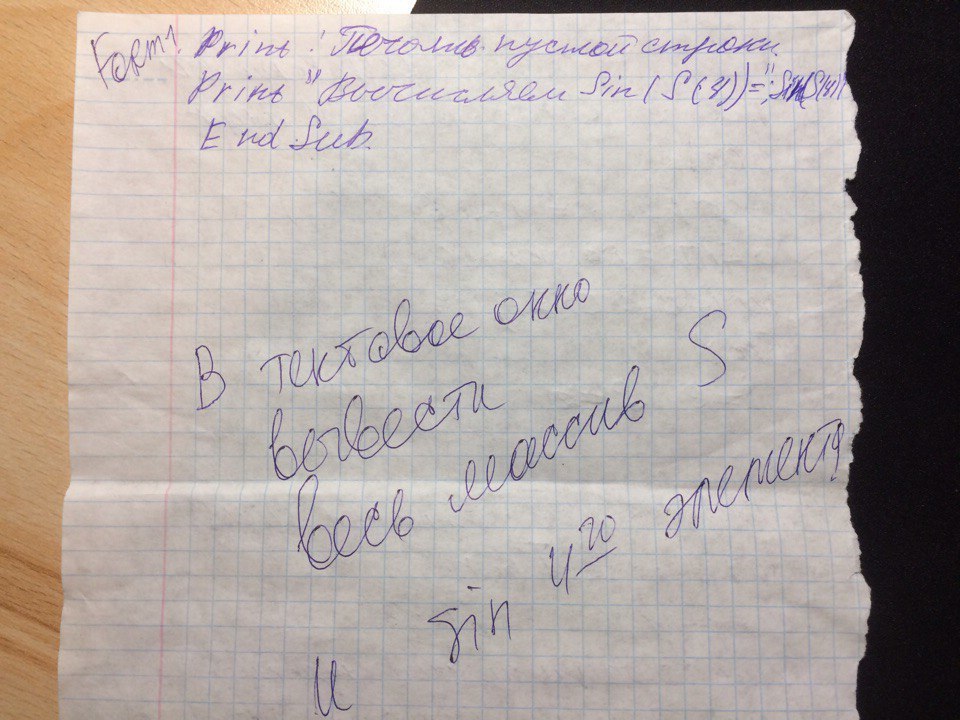 Form1. Print ! Печать пустой строки
Print "Вычисляем Sin(S(4))="; Sin(S(4))
End Sub.
В текстовое окно
вывести
весь массив S
и sin 4го элемента